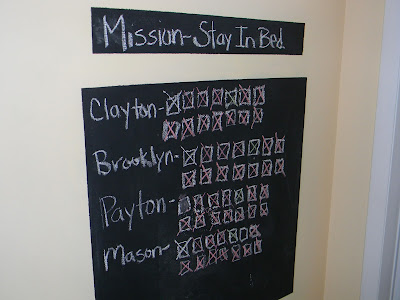 Mission-Stay In Bed
Clayton-
Brooklyn-
Payton-
Mason-